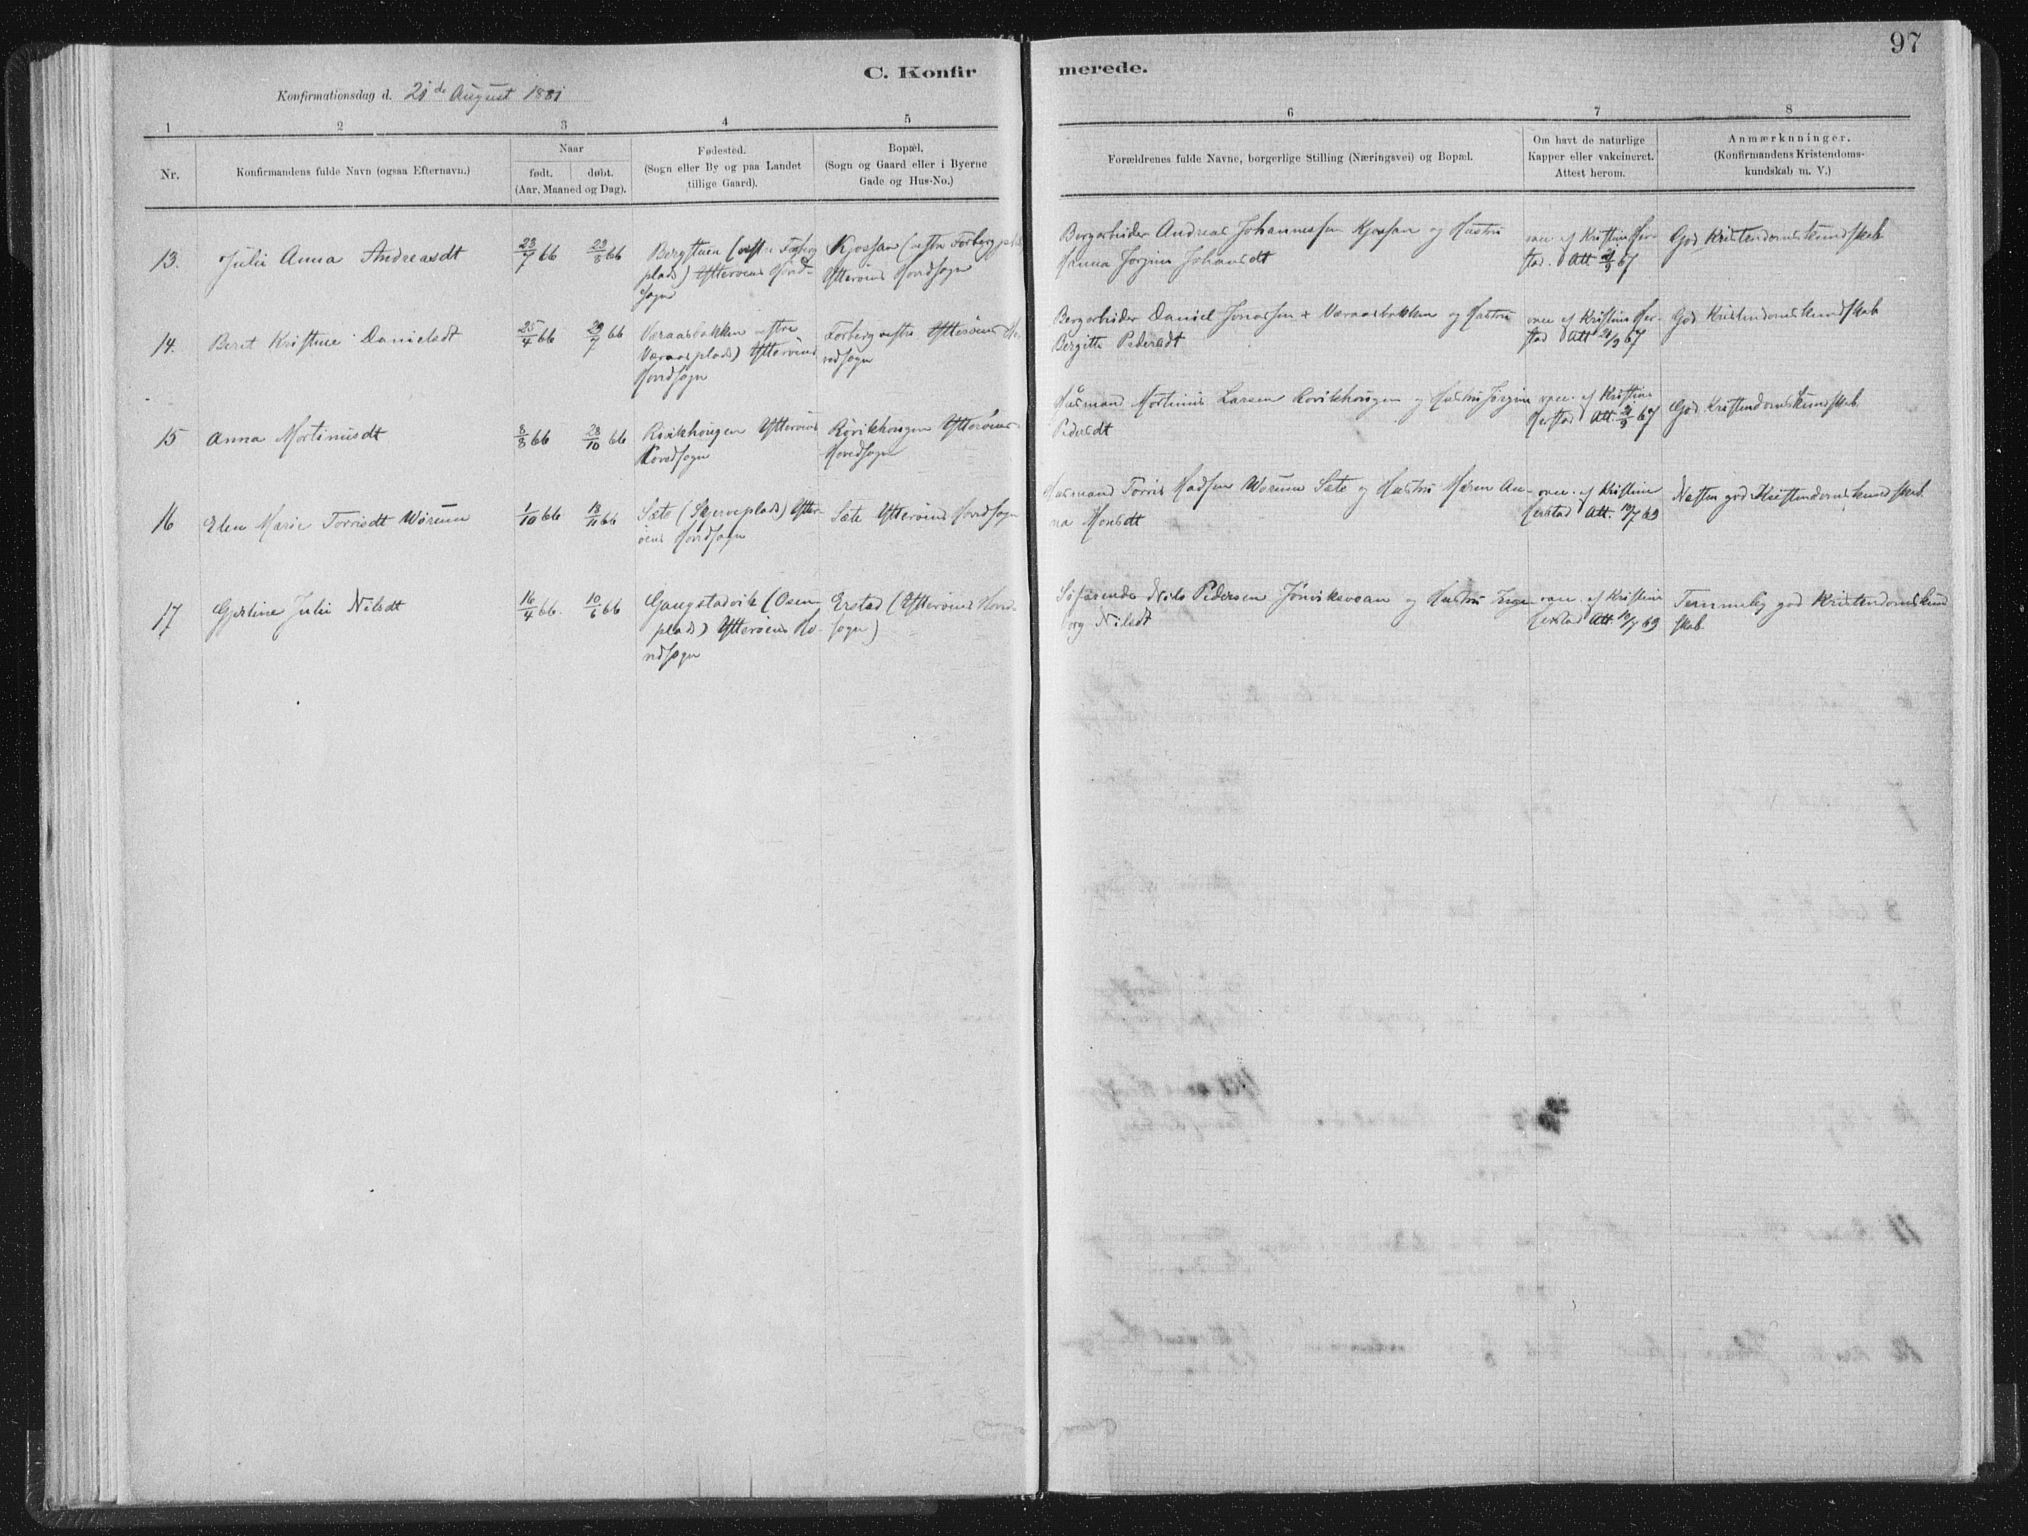 97
C. Konfirmerede.
Konfirmationsdag d. 21de August 1881
1 2 3 4 5 6 7 8
Nr.
Konfirmandens fulde Navn (ogsaa Efternavn.)
Naar
født. døbt.
(Aar, Maaned og Dag).
Fødested.
(Sogn eller By og paa Landet
tillige Gaard).
Bopæl,
(Sogn og Gaard eller i Byerne
Gade og Hus-No.)
Forældrenes fulde Navne, borgerlige Stilling (Næringsvei) og Bopæl.
Om havt de naturlige
Kapper eller vakcineret.
Attest herom.
Anmærknninger.
(Konfirmandens Kristendoms-
kundskab m. V.)
13. Julie Anna Andreasdt
23/7 66 23/8 66
Bergstuen (vestre Forberg
plads) Ytterøens Hovd-
sogn
Kjossan (vestre Forberg plads
Ytterøens Hovdsogn
Bergarbeider Andreas Johannessen Kjossan og Hustru
Hanna Jørgine Johansdt
vacc. af Kristine Her-
stad. Att 21/9 67
God Kristendomskundskab
14. Beret Kristine Danielsdt
25/4 66 29/7 66
Væraasbakken vestre
Væraasplads) Ytterøens
Hovdsogn
Forberg vestre Ytterøens Ho-
vedsogn
Bergarbeider Daniel Jonassen Væraasbakken og Hustru
Bergitte Pedersdt
vacc af Kristine Her-
stad Att 21/9 67
God Kristendomskundskab
15 Anna Mortinusdt
8/8 66 28/10 66
Rövikhougen Ytterøens
Hovedsogn
Rövikhougen Ytterøens
Hovedsogn
Husmand Mortinus Larsen Rovikhougen og Hustru Jørgine
Pedersdt
vacc. af Kristine
Herstad Att. 21/9 67
God Kristendomskundskab
16 Elen Marie Torrisdt Wørum
1/10 66 18/11 66
Sæte (Skjerveplads) Ytter-
øens Hovdsogn
Sæte Ytterøens Hovdsogn
Husmand Torris Madsen Wørum Sæte og Hustru Maren An-
na Monsdt
vacc. af Kristine
Herstad Att. 10/7 69
Næsten god Kristendomskundskab
17 Gjertine Julie Nilsdt
16/4 66. 10/6 66
Gangstadvik (Osen
plads) Ytterøens Ho-
vedsogn
Erstad (Ytterøens Hoved-
sogn)
Søfarende Nils Pedersen Jønviksvean og Hustru Inge-
org Nilsdt
vacc. af Kristine
Herstad Att. 10/7 69
Temmelig god Kristendomskund
skab